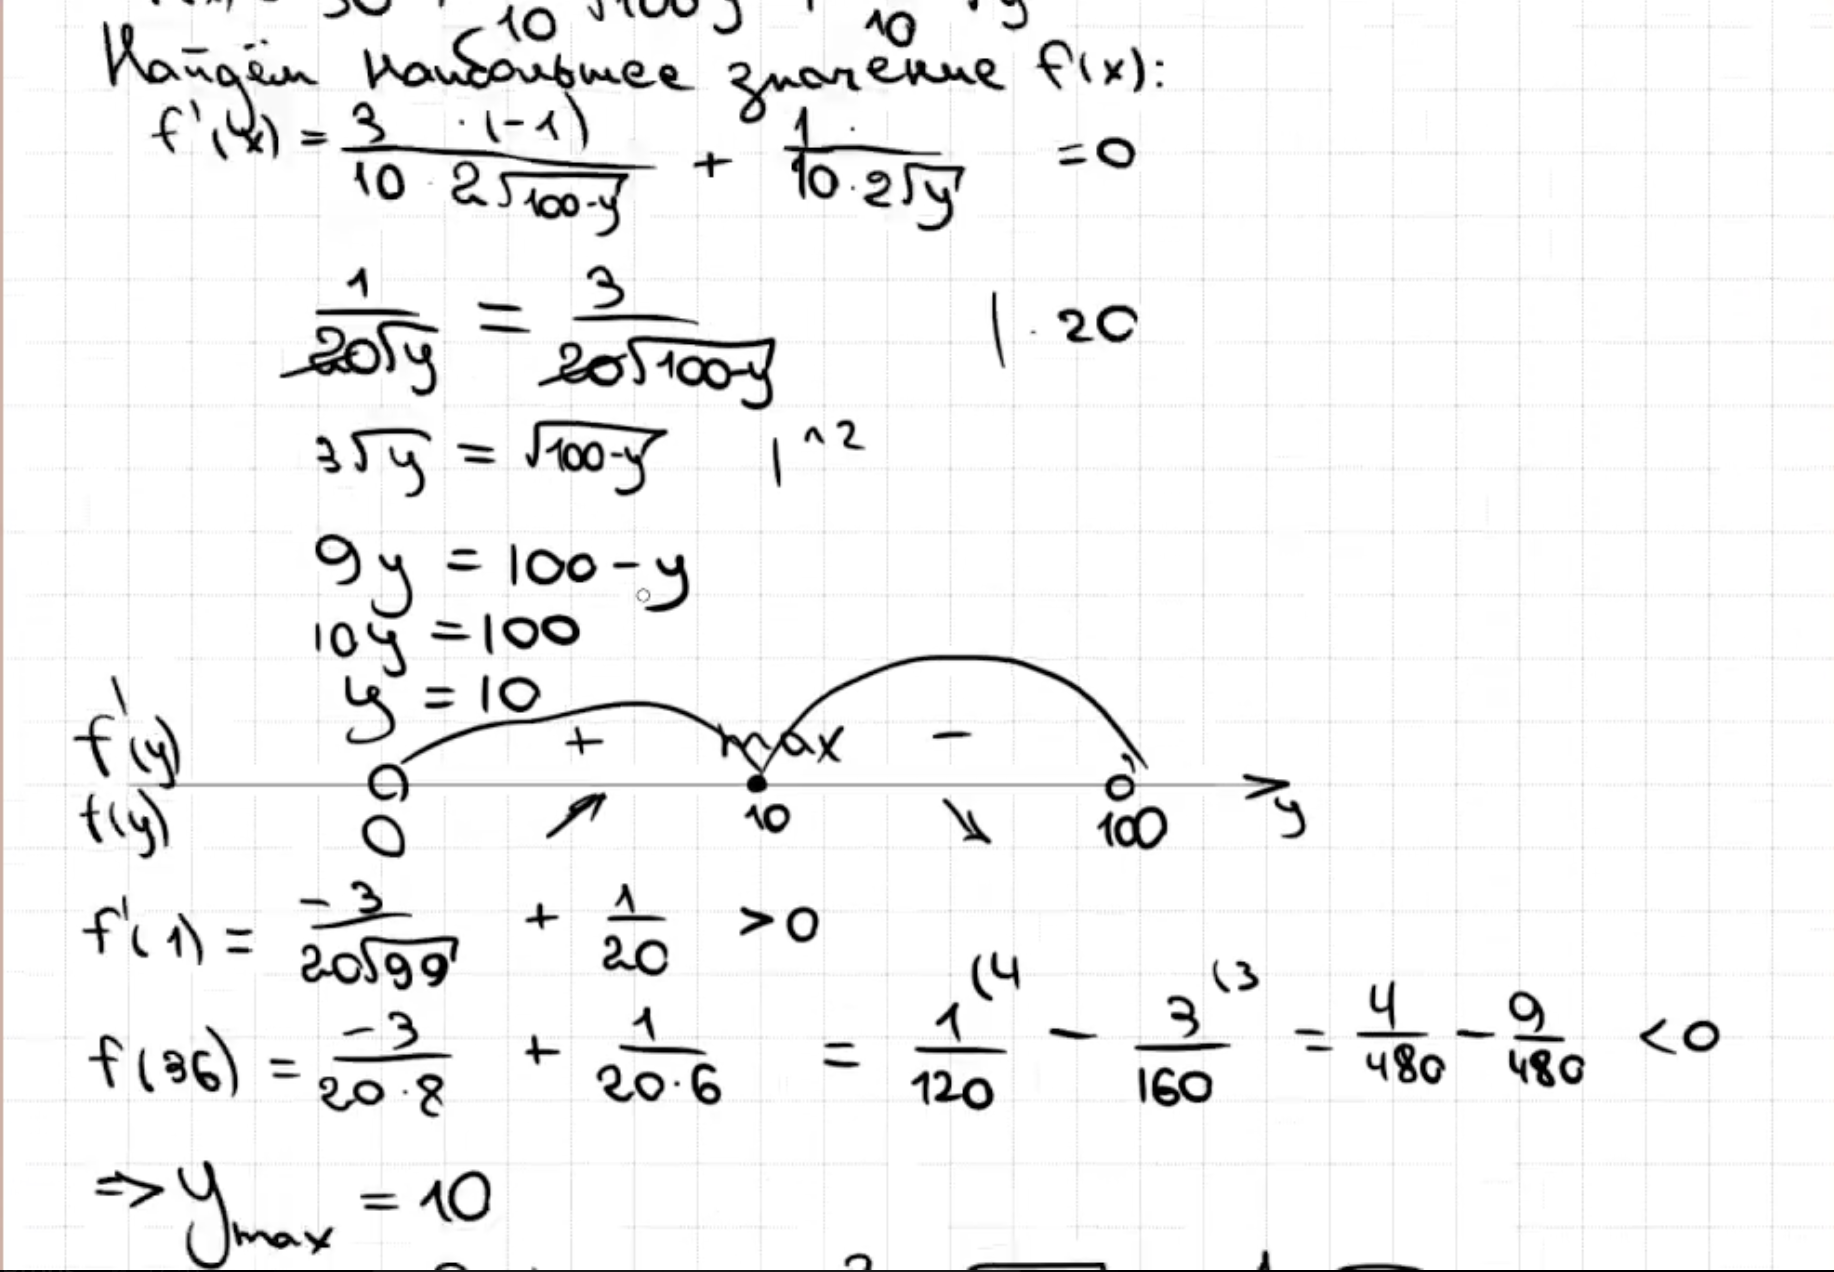 10 √100 y 10 y
Найдём наибольшее значение f(x):
f'(x) = 3 · (-1) / 10 · 2√100-y + 1 · / 10 · 2√y = 0
1 / 20√y = 3 / 20√100-y | · 20
3√y = √100-y | ^2
9y = 100 - y
10y = 100
y = 10
f'(y) + max -
f(y) 0 ↗ 10 ↘ 100 y
f'(1) = -3 / 20√99 + 1 / 20 > 0
f(36) = -3 / 20 · 8 + 1 / 20 · 6 = 1 (4 / 120 - 3 (3 / 160 = 4 / 480 - 9 / 480 < 0
=> y max = 10